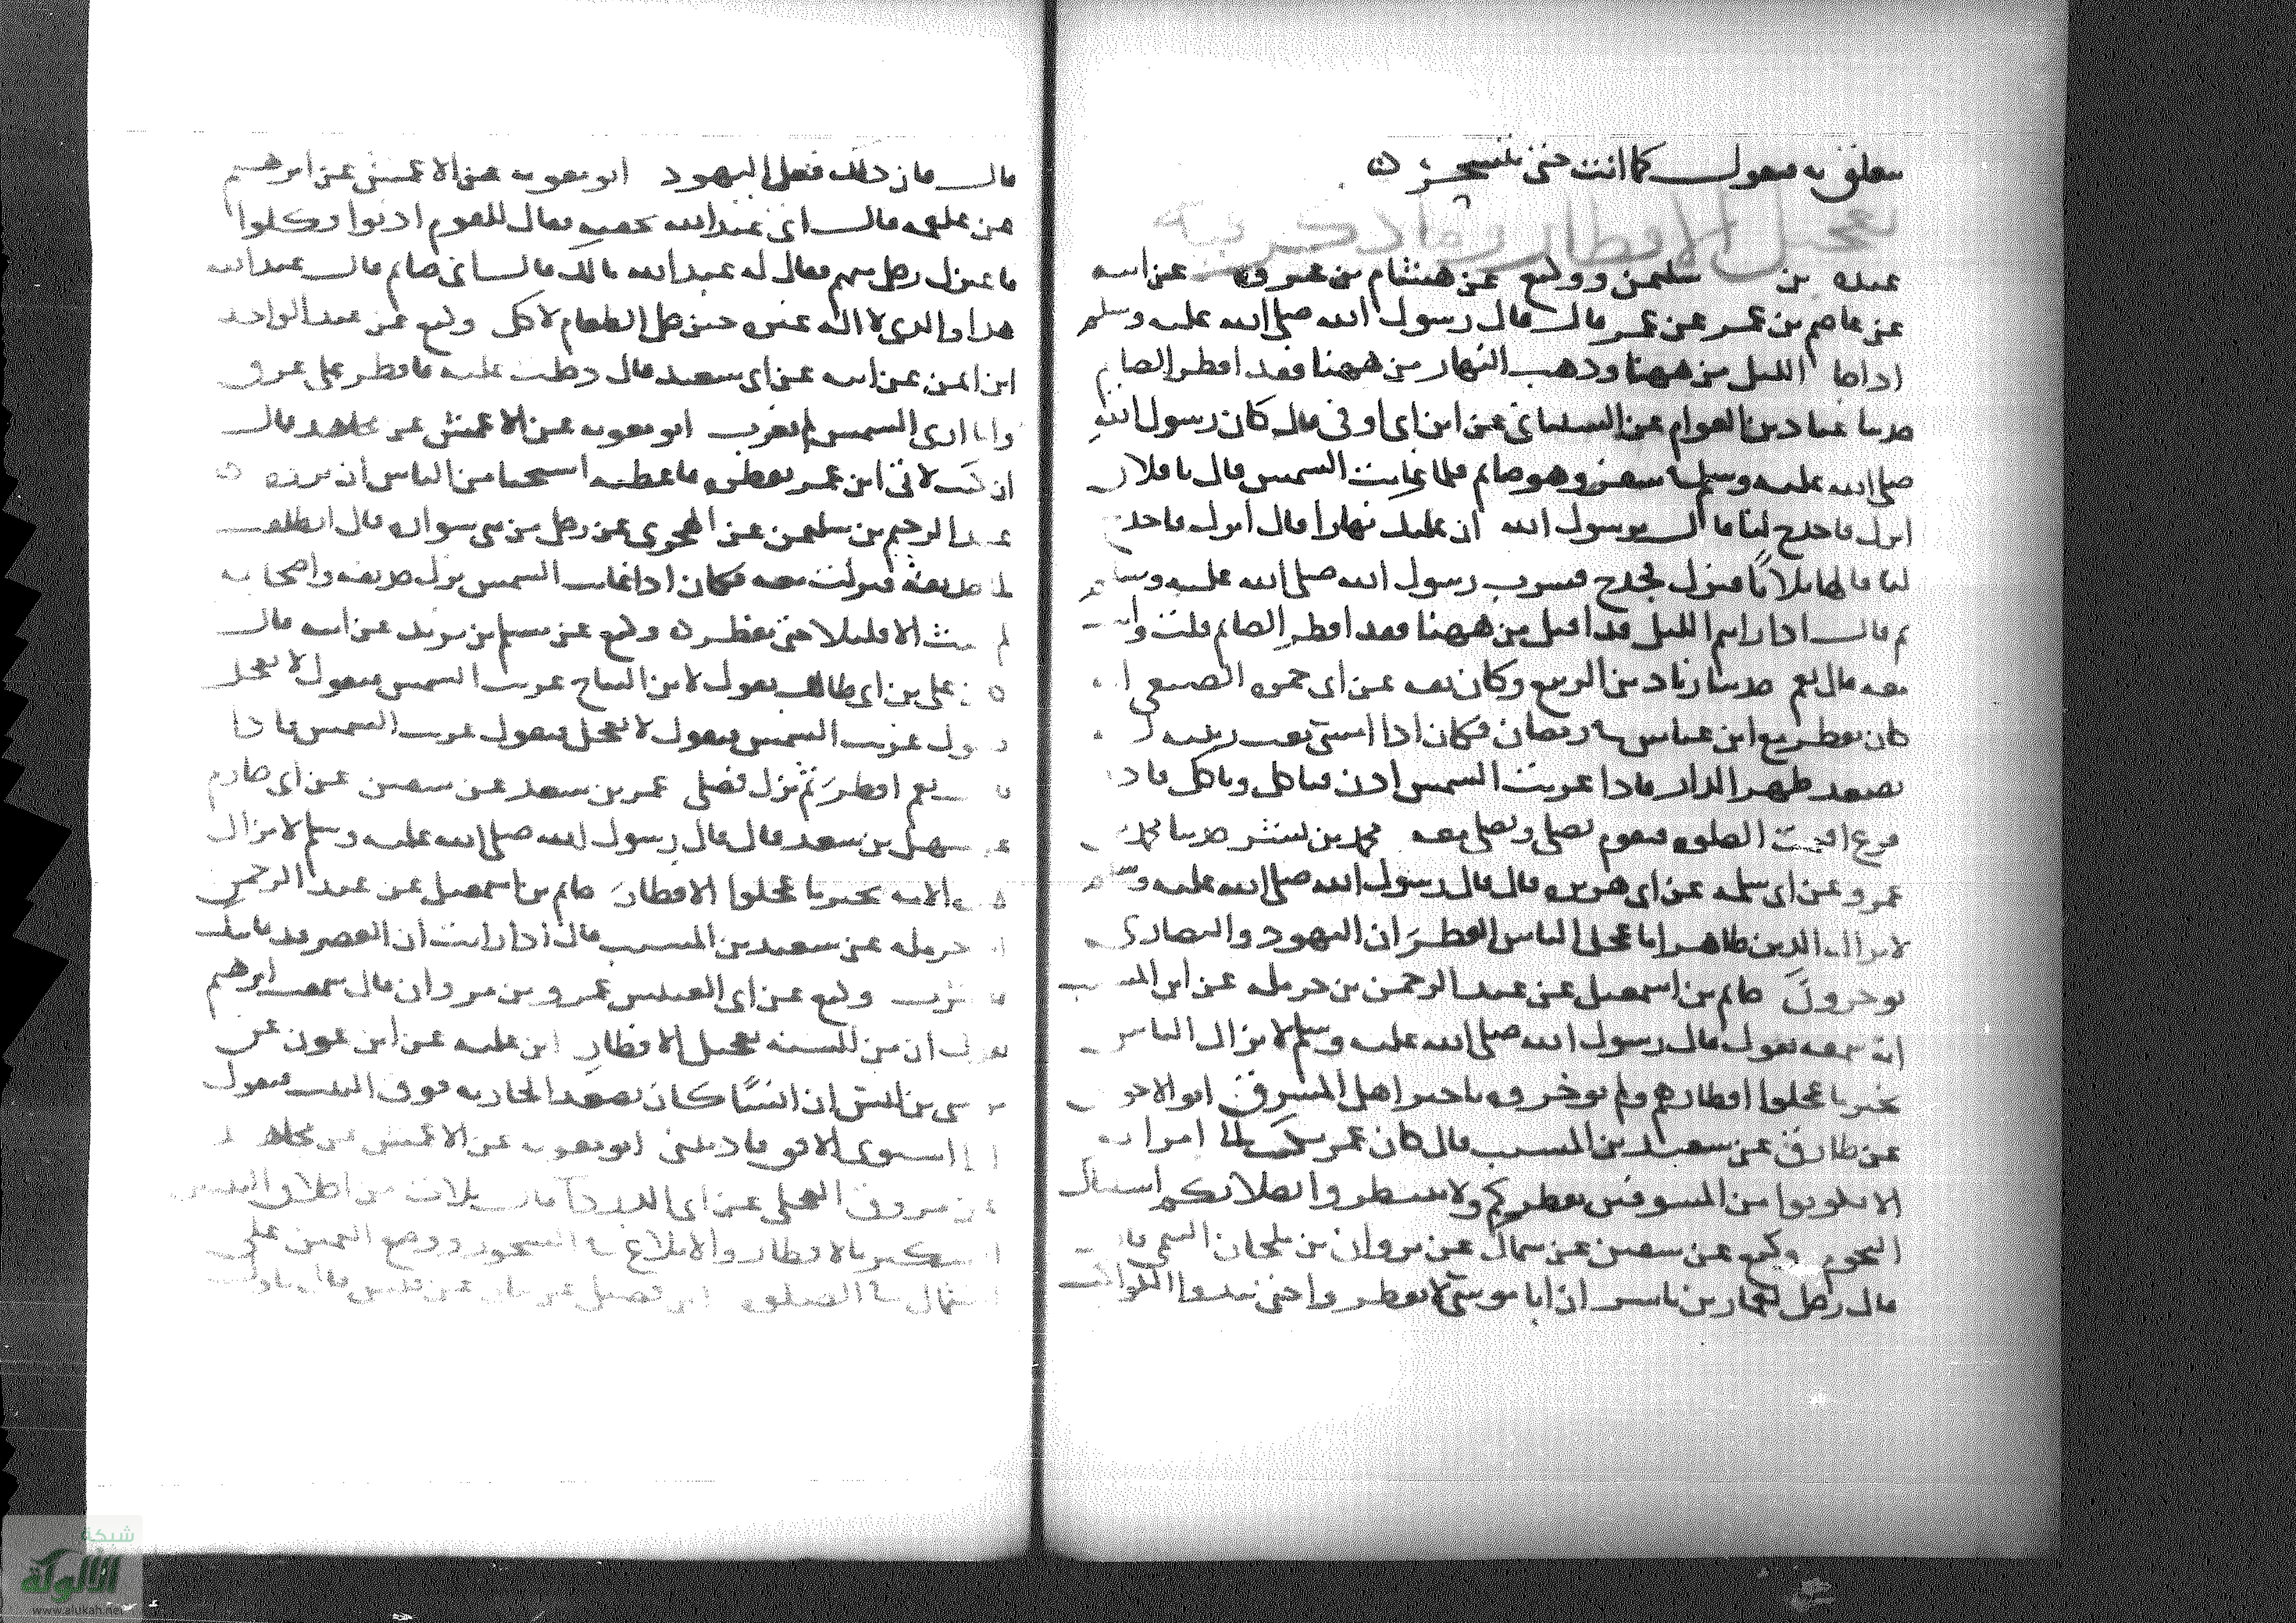 يتعلق به فيقول كما انت حتى يتسحر ن
تعجيل الافطار وما ذكر فيه
عبده بن سليمن ووكيع عن هشام بن عروة عن ابيه
عن عاصم بن عمر عن عمر قال قال رسول الله صلى الله عليه وسلم
اذا جا الليل من ههنا وذهب النهار من ههنا فقد افطر الصايم
حدثنا عباد بن العوام عن الشيباني عن ابن ابي اوفى قال كان رسول الله
صلى الله عليه وسلم في سفر وهو صايم فلما غابت الشمس قال يا فلان
انزل فاجدح لنا قال يرسول الله ان عليك نهارا قال انزل فاجدح
لنا قالها ثلاثا فنزل فجدح فشرب رسول الله صلى الله عليه وسلم
ثم قال اذا رايتم الليل قد اقبل من ههنا فقد افطر الصايم قلت وانت
معه قال نعم حدثنا زياد بن الربيع وكان ثقه عن ابي جمره الضبعي
كان يفطر مع ابن عباس في رمضان فكان اذا امسى بعث ربيبه
يصعد ظهر الدار فاذا غربت الشمس اذن فياكل وناكل فاذا
فرغ اقيمت الصلوه فيقوم يصلي ونصلي معه محمد بن بشر حدثنا محمد بن
عمرو عن ابي سلمه عن ابي هريره قال قال رسول الله صلى الله عليه وسلم
لا يزال الدين ظاهرا ما عجل الناس الفطر ان اليهود والنصارى
يوخرون حاتم بن اسمعيل عن عبد الرحمن بن حرمله عن ابن المسيب
انه سمعه يقول قال رسول الله صلى الله عليه وسلم لا يزال الناس
بخير ما عجلوا افطارهم ولم يوخروه تاخير اهل المشرق ابو الاحوص
عن طارق عن سعيد بن المسيب قال كان عمر يكتب الى امرايه
الا تكونوا من المسوفين بفطركم ولا تنتظروا بصلاتكم اشتباك
النجوم وكيع عن سفين عن سماك عن ثروان بن ملحان التيمي قال
قال رجل لعمار بن ياسر ان ابا موسى قال لا تفطروا حتى تبدوا الكواكب
قال فان ذلك فعل اليهود ابو معويه عن الاعمش عن ابرهيم
عن علقمه قال اتي عبد الله بجفنه فقال للقوم ادنوا فكلوا
فاعتزل رجل منهم فقال له عبد الله مالك قال اني صايم قال عبد الله
هذا والذي لا اله غيره حين حل الطعام لاكل وكيع عن عبد الواحد
ابن ايمن عن ابيه عن ابي سعيد قال دخلت عليه فافطر على عرق
وانا ارى الشمس لم تغرب ابو معويه عن الاعمش عن مجاهد قال
ان كنت لاتي ابن عمر بفطره فاغطيه استحيا من الناس ان يروه ن
عبد الرحيم بن سليمن عن الهجري عن رجل من بني سواده قال انطلقت
الى حذيفه فنزلت معه فكان اذا غابت الشمس نزل حذيفه واصحابه
لم يلبث الا قليلا حتى يفطر ن وكيع عن مسلم بن يزيد عن ابيه قال
كان علي بن ابي طالب يقول لابن النباح غربت الشمس فيقول لا تعجل
فيقول غربت الشمس فيقول لا تعجل فيقول غربت الشمس فاذا
قال نعم افطر ثم نزل فصلى عمر بن سعد عن سفين عن ابي حازم
عن سهل بن سعد قال قال رسول الله صلى الله عليه وسلم لا تزال
هذه الامه بخير ما عجلوا الافطار حاتم بن اسمعيل عن عبد الرحمن
بن حرمله عن سعيد بن المسيب قال اذا رايت ان العصر قد فاتتك
فاشرب وكيع عن ابي العنبس عمرو بن مروان قال سمعت ابرهيم
يقول ان من السنه تعجيل الافطار ابن عليه عن ابن عون عن
موسى بن انس ان انسا كان يصعد الجاريه فوق البيت فيقول
اذا استوى الافق فاذنيني ابو معويه عن الاعمش عن مجاهد
عن مورق العجلي عن ابي الدردا قال ثلاث من اخلاق النبيين
التبكير بالافطار والابلاغ في السحور ووضع اليمين على
الشمال في الصلوه ابن فضيل عن بيان عن قيس قال ناول